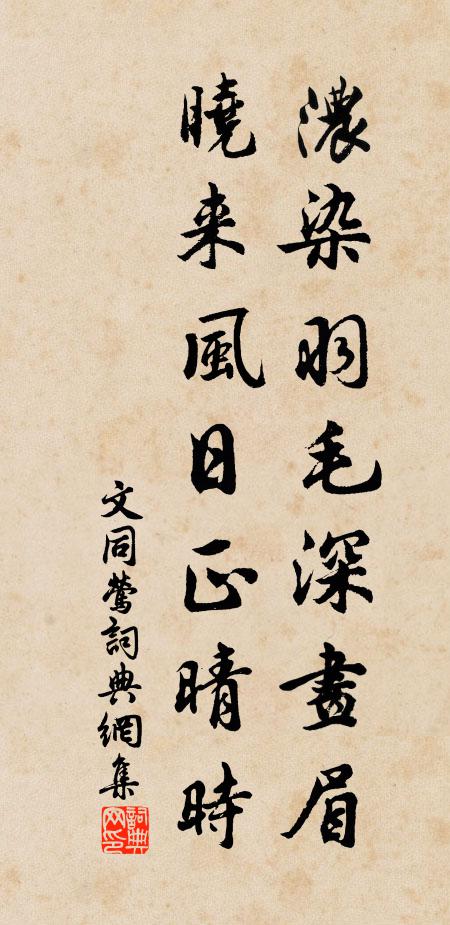 濃染羽毛深畫眉
曉来風日正晴時
文同鶯詞典網集
詞典網印